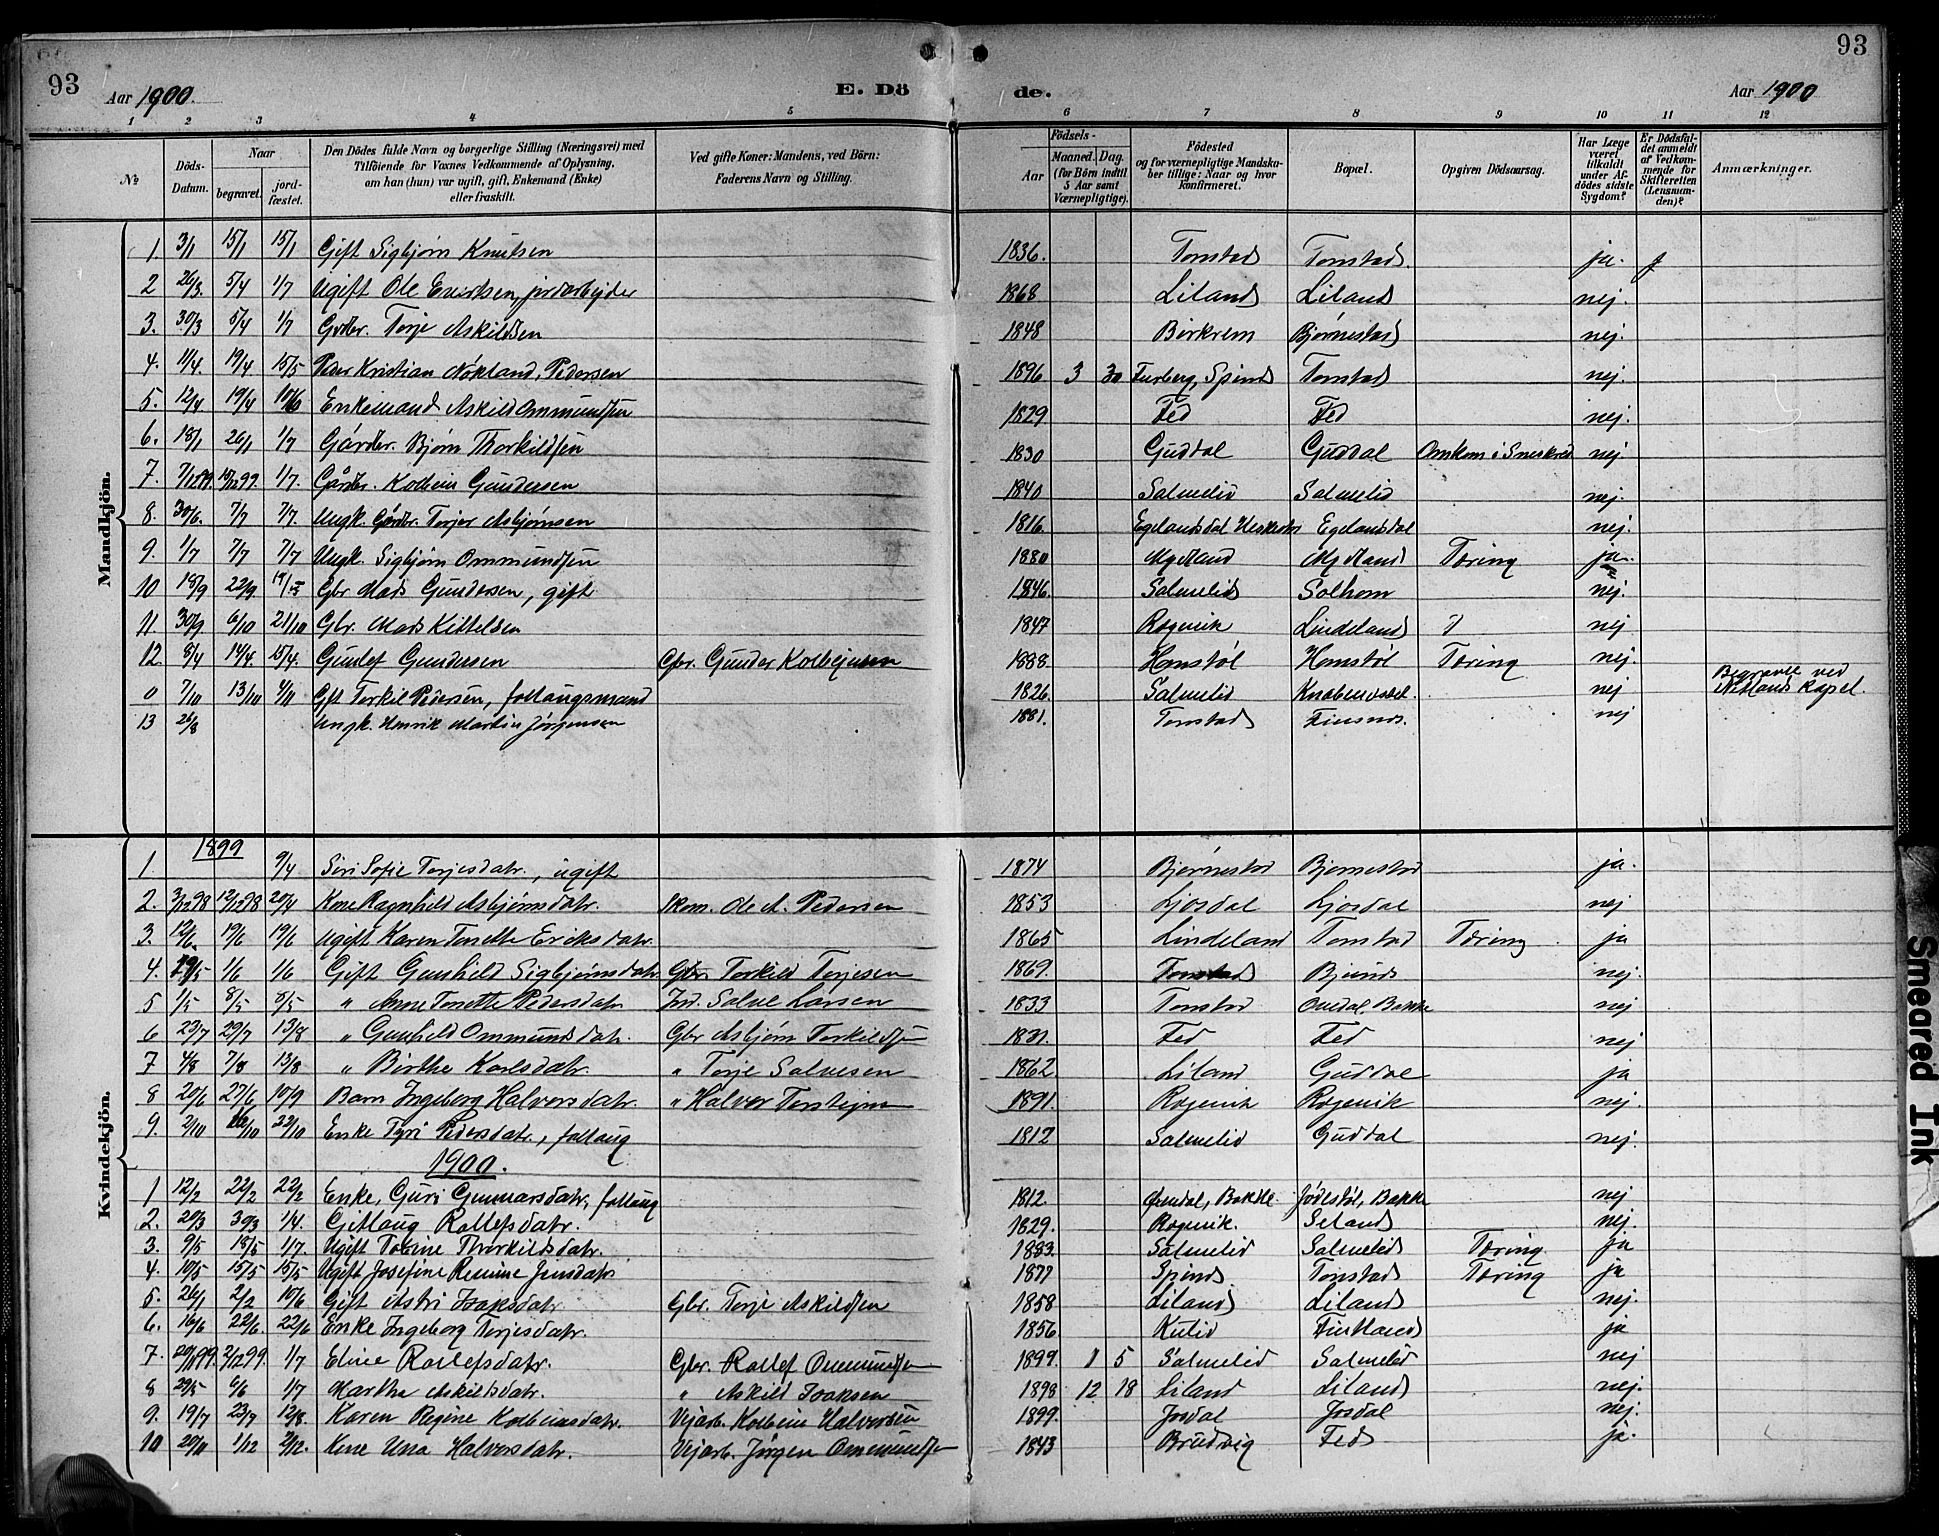 93
Aar 1900.
E. Dö
de.
Aar 1900
93
1 2 3 4 5 6 7 8 9 10 11 12
№
Döds-Datum.
Naar
begravet.
jordfæstet.
Den Dödes fulde Navn og borgerlige Stilling (Næringsvei) med
Tilföiende for Voxnes Vedkommende af Oplysning,
om han (hun) var ugift, gift, Enkemand (Enke)
eller fraskilt.
Ved gifte Koner: Mandens, ved Börn:
Faderens Navn og Stilling.
Födsels-
Aar
Maaned. Dag.
(for Börn indtil
5 Aar samt
Værnepligtige).
Födested
og for værnepligtige Mandska-
ber tillige: Naar og hvor
konfirmeret.
Bopæl.
Opgiven Dödsaarsag.
Har Læge
været
tilkaldt
under Af-
dödes sidste
Sygdom?
Er Dödsfal-
det anmeldt
af Vedkom-
mende for
Skifteretten
(Lensman-
den)?
Anmærkninger.
Mandkjön.
1. 3/1 15/1 15/1 Gift Sigbjørn Knutsen 1836. Tonstad Tonstad. ja.
2 26/3. 5/4 1/7 Ugift Ole Evertsen, jordarbejder 1868 Liland Liland nej.
3. 30/3 5/4 1/7 Grdbr. Torje Askildsen 1848 Birkrem Bjørnestad nej.
4. 11/4. 19/4 15/5 Peder Kristian Nøkland Pedersen 1896 3 30 Furberg, Spind Tonstad nej.
5. 12/4 19/4 10/6 Enkemand Askild Ommundsen 1829 Fed Fed nej.
6. 18/1 26/1 1/7 Gårdbr. Bjørn Thorkildsen 1830 Guddal Guddal Omkom i Sneskred nej
7. 7/12 99. 15/12 99. 1/7. Gårdbr. Kolbein Gundersen 1840 Salmelid Salmelid nej.
8. 30/6. 7/7 7/7. Ungk. Gårdbr. Torjer Asbjørnsen 1816. Egelandsdal Egelandsdal nej.
9. 1/7 7/7 7/7 Ungk. Sigbjørn Ommundsen 1880 Mydland Mydland Tæring ja.
10 18/9 22/9 Gbr Mads Gundersen, gift 1846. Salmelid Solhom nej.
11 30/9 6/10 21/10 Gbr. Mads Kittelsen 1847 Røgevik Lindeland nej
12. 8/4 14/4. 15/4. Gunlef Gundersen Gbr. Gunder Kolbejnsen 1888 Homstøl Homstøl Tæring nej.
0 7/10 13/10 4/11 Gft Torkil Pedersen, follaugsmand 1826. Salmelid Knabenvdal. nej Begravet ved Netland kapel.
13 25/8 Ungk. Henrik Martin Jørgensen 1881. Tonstad Finsnes. nej
Kvindekjön.
1899
1 9/4 Siri Sofie Torjesdatr., ugift 1874 Bjørnestad Bjørnestad ja.
2. 3/12 98 12/12 98 20/4 Kone Ragnhild Asbjørnsdatr. Skom. Ole A. Pedersen 1853 Ljosdal Ljosdal nej
3. 12/6. 19/6 19/6 Ugift Karen Tonette Eriksdatr. 1865 Lindeland Tonstad Tæring ja
4. 29/5 1/6 1/6 Gift Gunhild Sigbjørnsdatr Gbr Torkild Torjesen 1869. Tonstad Bjunes nej.
5 1/5 8/5 8/5 " Anne Tonette Pedersdatr Ind. Salve Larsen 1833 Tonstad Omdal, Bakke nej
6 23/7 29/7 13/8 " Gunhild Ommundsdatr. Gbr Asbjørn Torkildsen 1831. Fed Fed nej
7 4/8 7/8 13/8 " Birthe Karlsdatr. " Torje Salvesen 1862. Liland Guddal ja
8 20/6 27/6 10/9 Barn Ingeborg Halvorsdatr. " Halvor Torstejnsen 1891. Røgevik Røgevik nej.
9. 2/10 16/10 22/10 Enke Tyri Pedersdatr., follaug 1812 Salmelid Guddal nej.
1900.
1 12/2 22/2 22/2 Enke, Guri Gunnarsdatr, follaug 1812. Omdal, Bakke Jødestøl, Bakke nej
2. 20/3 30/3 1/4. Gitlaug Rollefsdatr. 1829. Røgevik. Seland nej.
3. 9/5 18/5 1/7. Ugift Tobine Thorkildsdatr. 1883. Salmelid Salmelid Tæring ja
4. 10/5 15/5 15/5 Ugift Josefine Remine Jensdatr 1877 Spind. Tonstad Tæring ja
5. 26/1 2/2 10/6 Gift Astri Isaksdatr Gbr. Torje Askildsen 1858 Liland Liland nej.
6. 16/6 22/6. 22/6 Enke Ingeborg Torjesdatr. 1856 Kvlid Fintland ja
7. 20/11 99. 2/12 99. 1/7 Eline Rollefsdatr. Gbr. Rollef Ommundsen 1899 1 5 Salmelid Salmelid nej
8 29/5 6/6 1/7 Martha Askildsdatr. " Askild Isaksen 1898 12 18 Liland Liland nej.
9. 19/7 23/7 12/8. Karen Regine Kolbeinsdatr. Vejarb. Kolbein Halvorsen 1899. Josdal Josdal nej.
10 20/11 1/12 2/12. Kone Una Halvorsdatr. Vejarb. Jørgen Ommundsen 1843 Brudvig Fed ja.
Smeared Ink